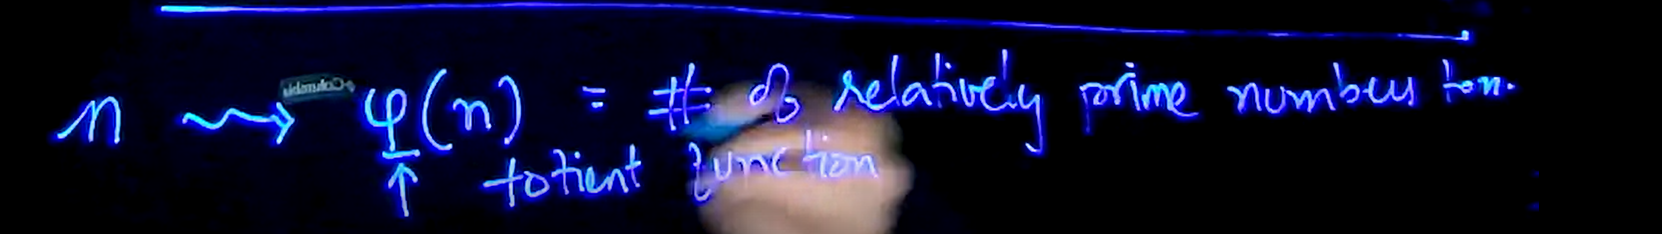 n ⇝ φ(n) = # of relatively prime numbers to n.
↑ totient function